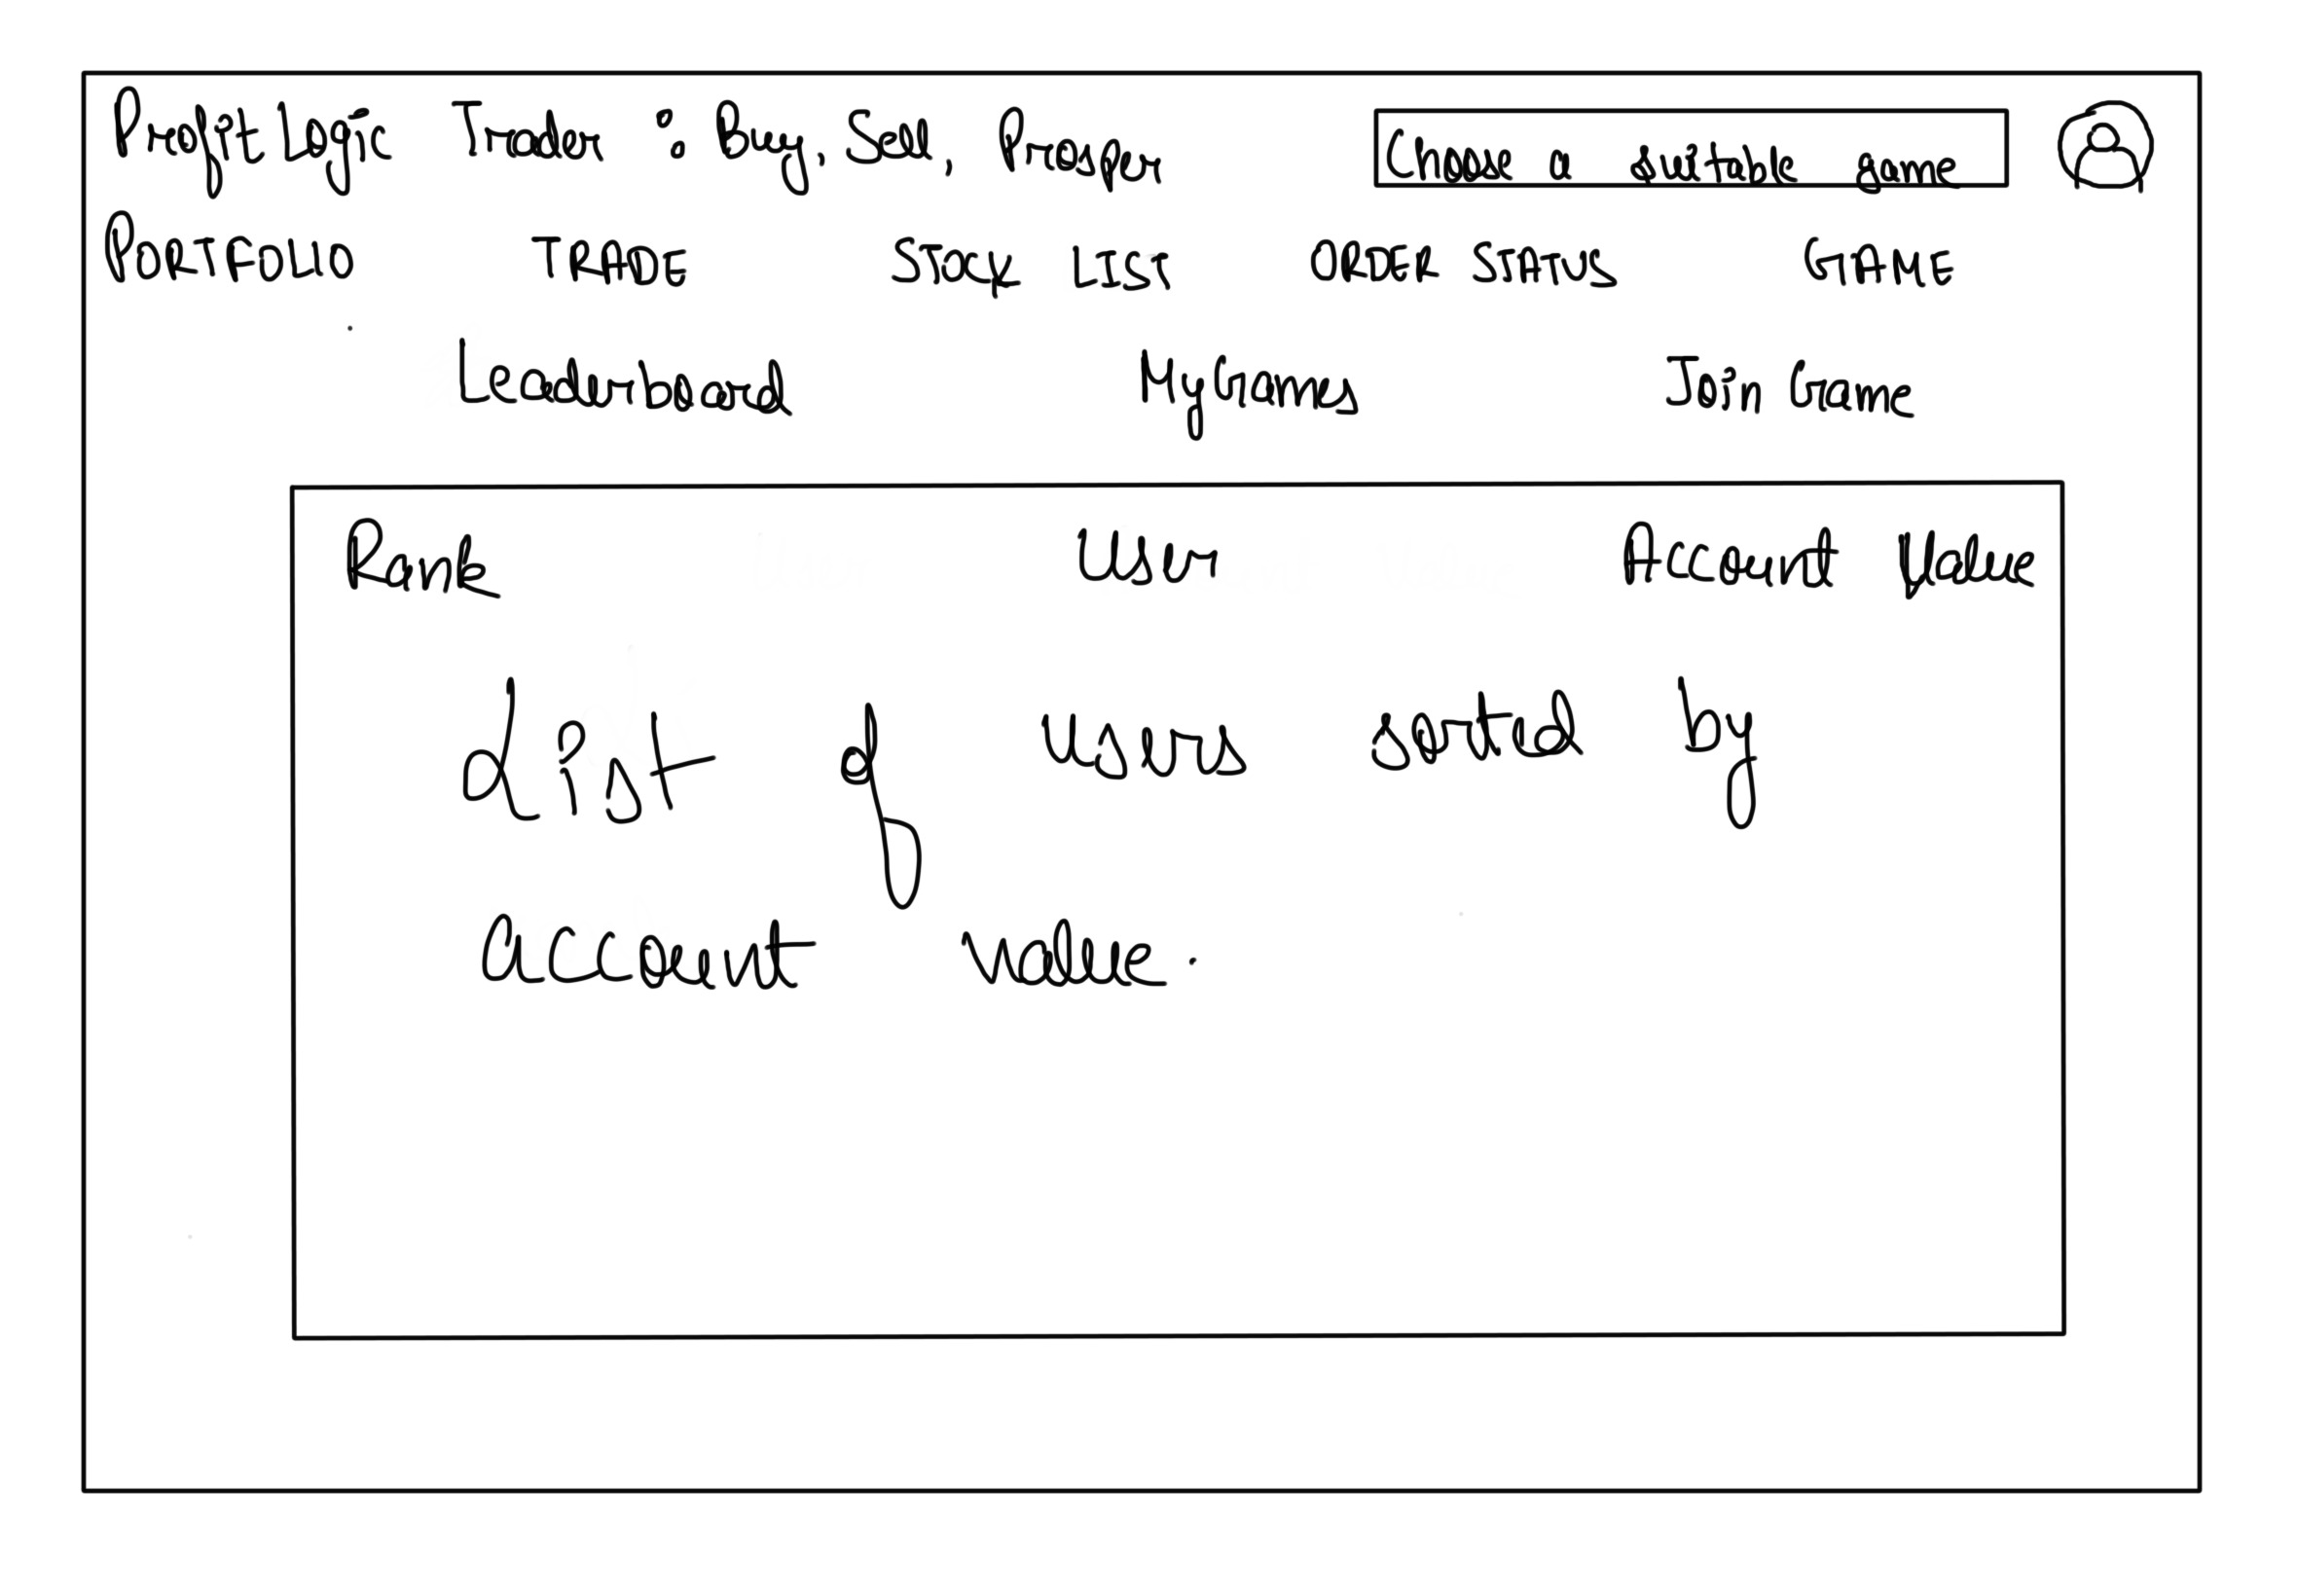 Profit Logic Trader : Buy, Sell, Prosper Choose a suitable game
PORTFOLIO TRADE STOCK LIST ORDER STATUS GAME
Leaderboard MyGames Join Game
Rank User Account Value
List of users sorted by
account value.